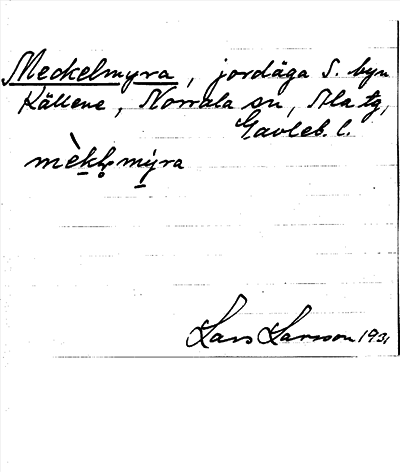 Meckelmyra, jordäga S. byn
Källene, Norrala sn, Ala tg,
Gävleb. l.
mèkl̥mýra
Lars Larsson 1931